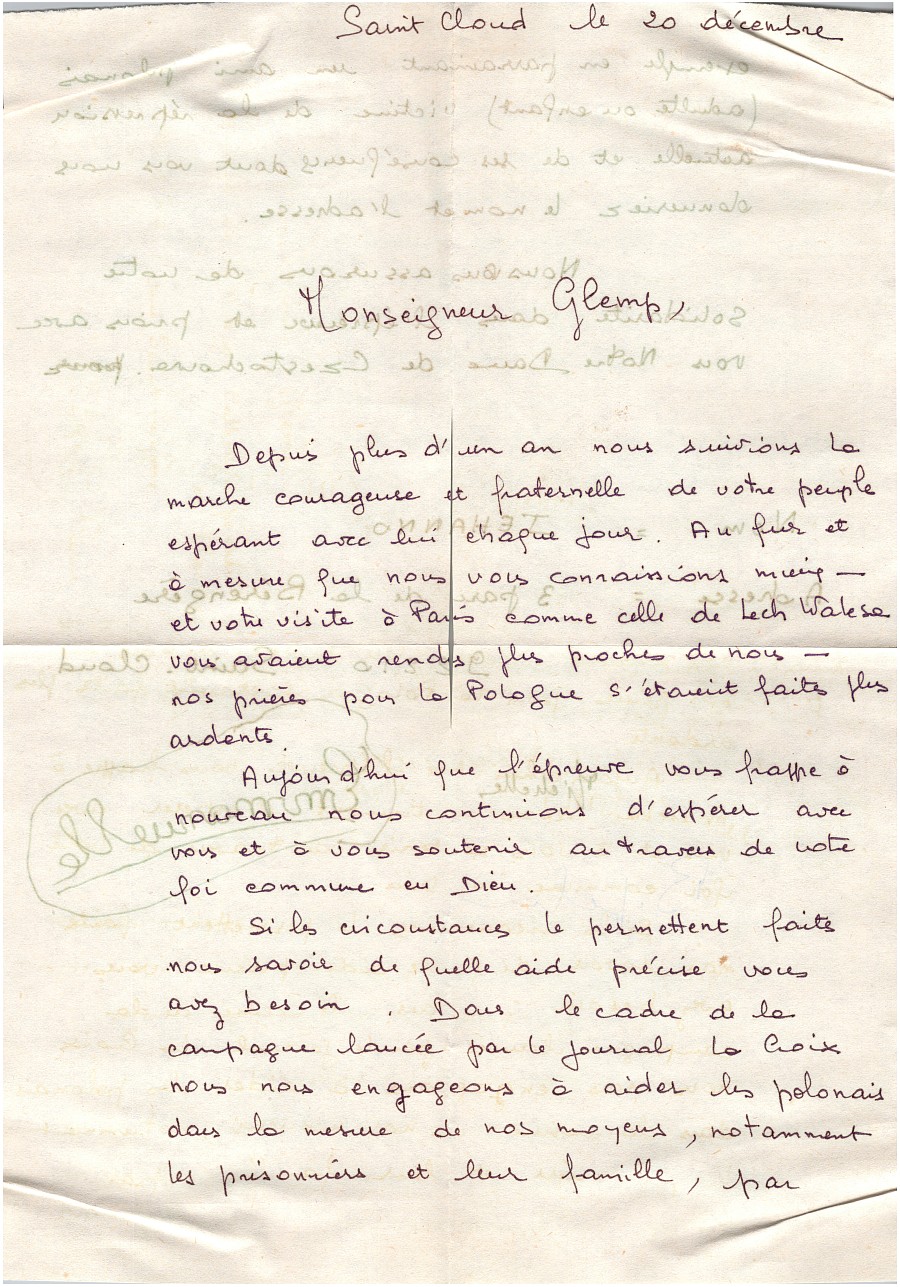 Saint Cloud le 20 décembre
Monseigneur Glemp,
Depuis plus d'un an nous suivions la
marche courageuse et fraternelle de votre peuple
espérant avec lui chaque jour. Au fur et
à mesure que nous vous connaissions mieux —
et votre visite à Paris comme celle de Lech Walesa
vous avaient rendus plus proches de nous —
nos prières pour la Pologne s'étaient faites plus
ardents.
Aujourd'hui que l'épreuve vous frappe à
nouveau nous continuons d'espérer avec
vous et à vous soutenir au travers de notre
foi commune en Dieu.
Si les circonstances le permettent faites
nous savoir de quelle aide précise vous
avez besoin. Dans le cadre de la
campagne lancée par le journal La Croix
nous nous engageons à aider les polonais
dans la mesure de nos moyens, notamment
les prisonniers et leur famille, par